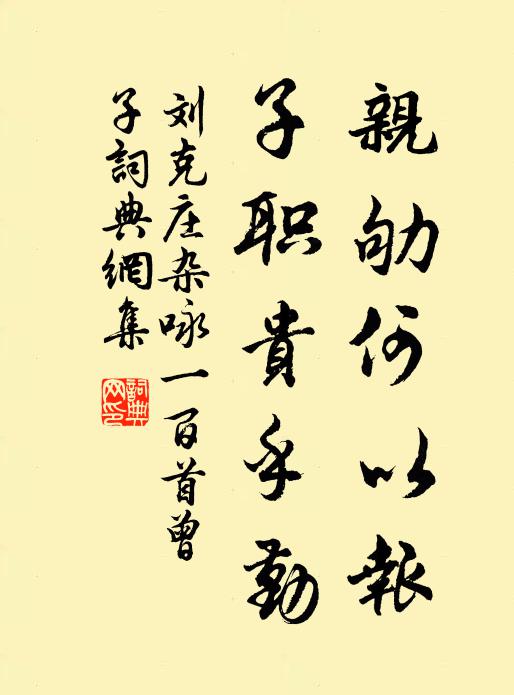 親劬何以報
子职貴乎勤
刘克庄杂咏一百首曾
子詞典網集
詞典网印